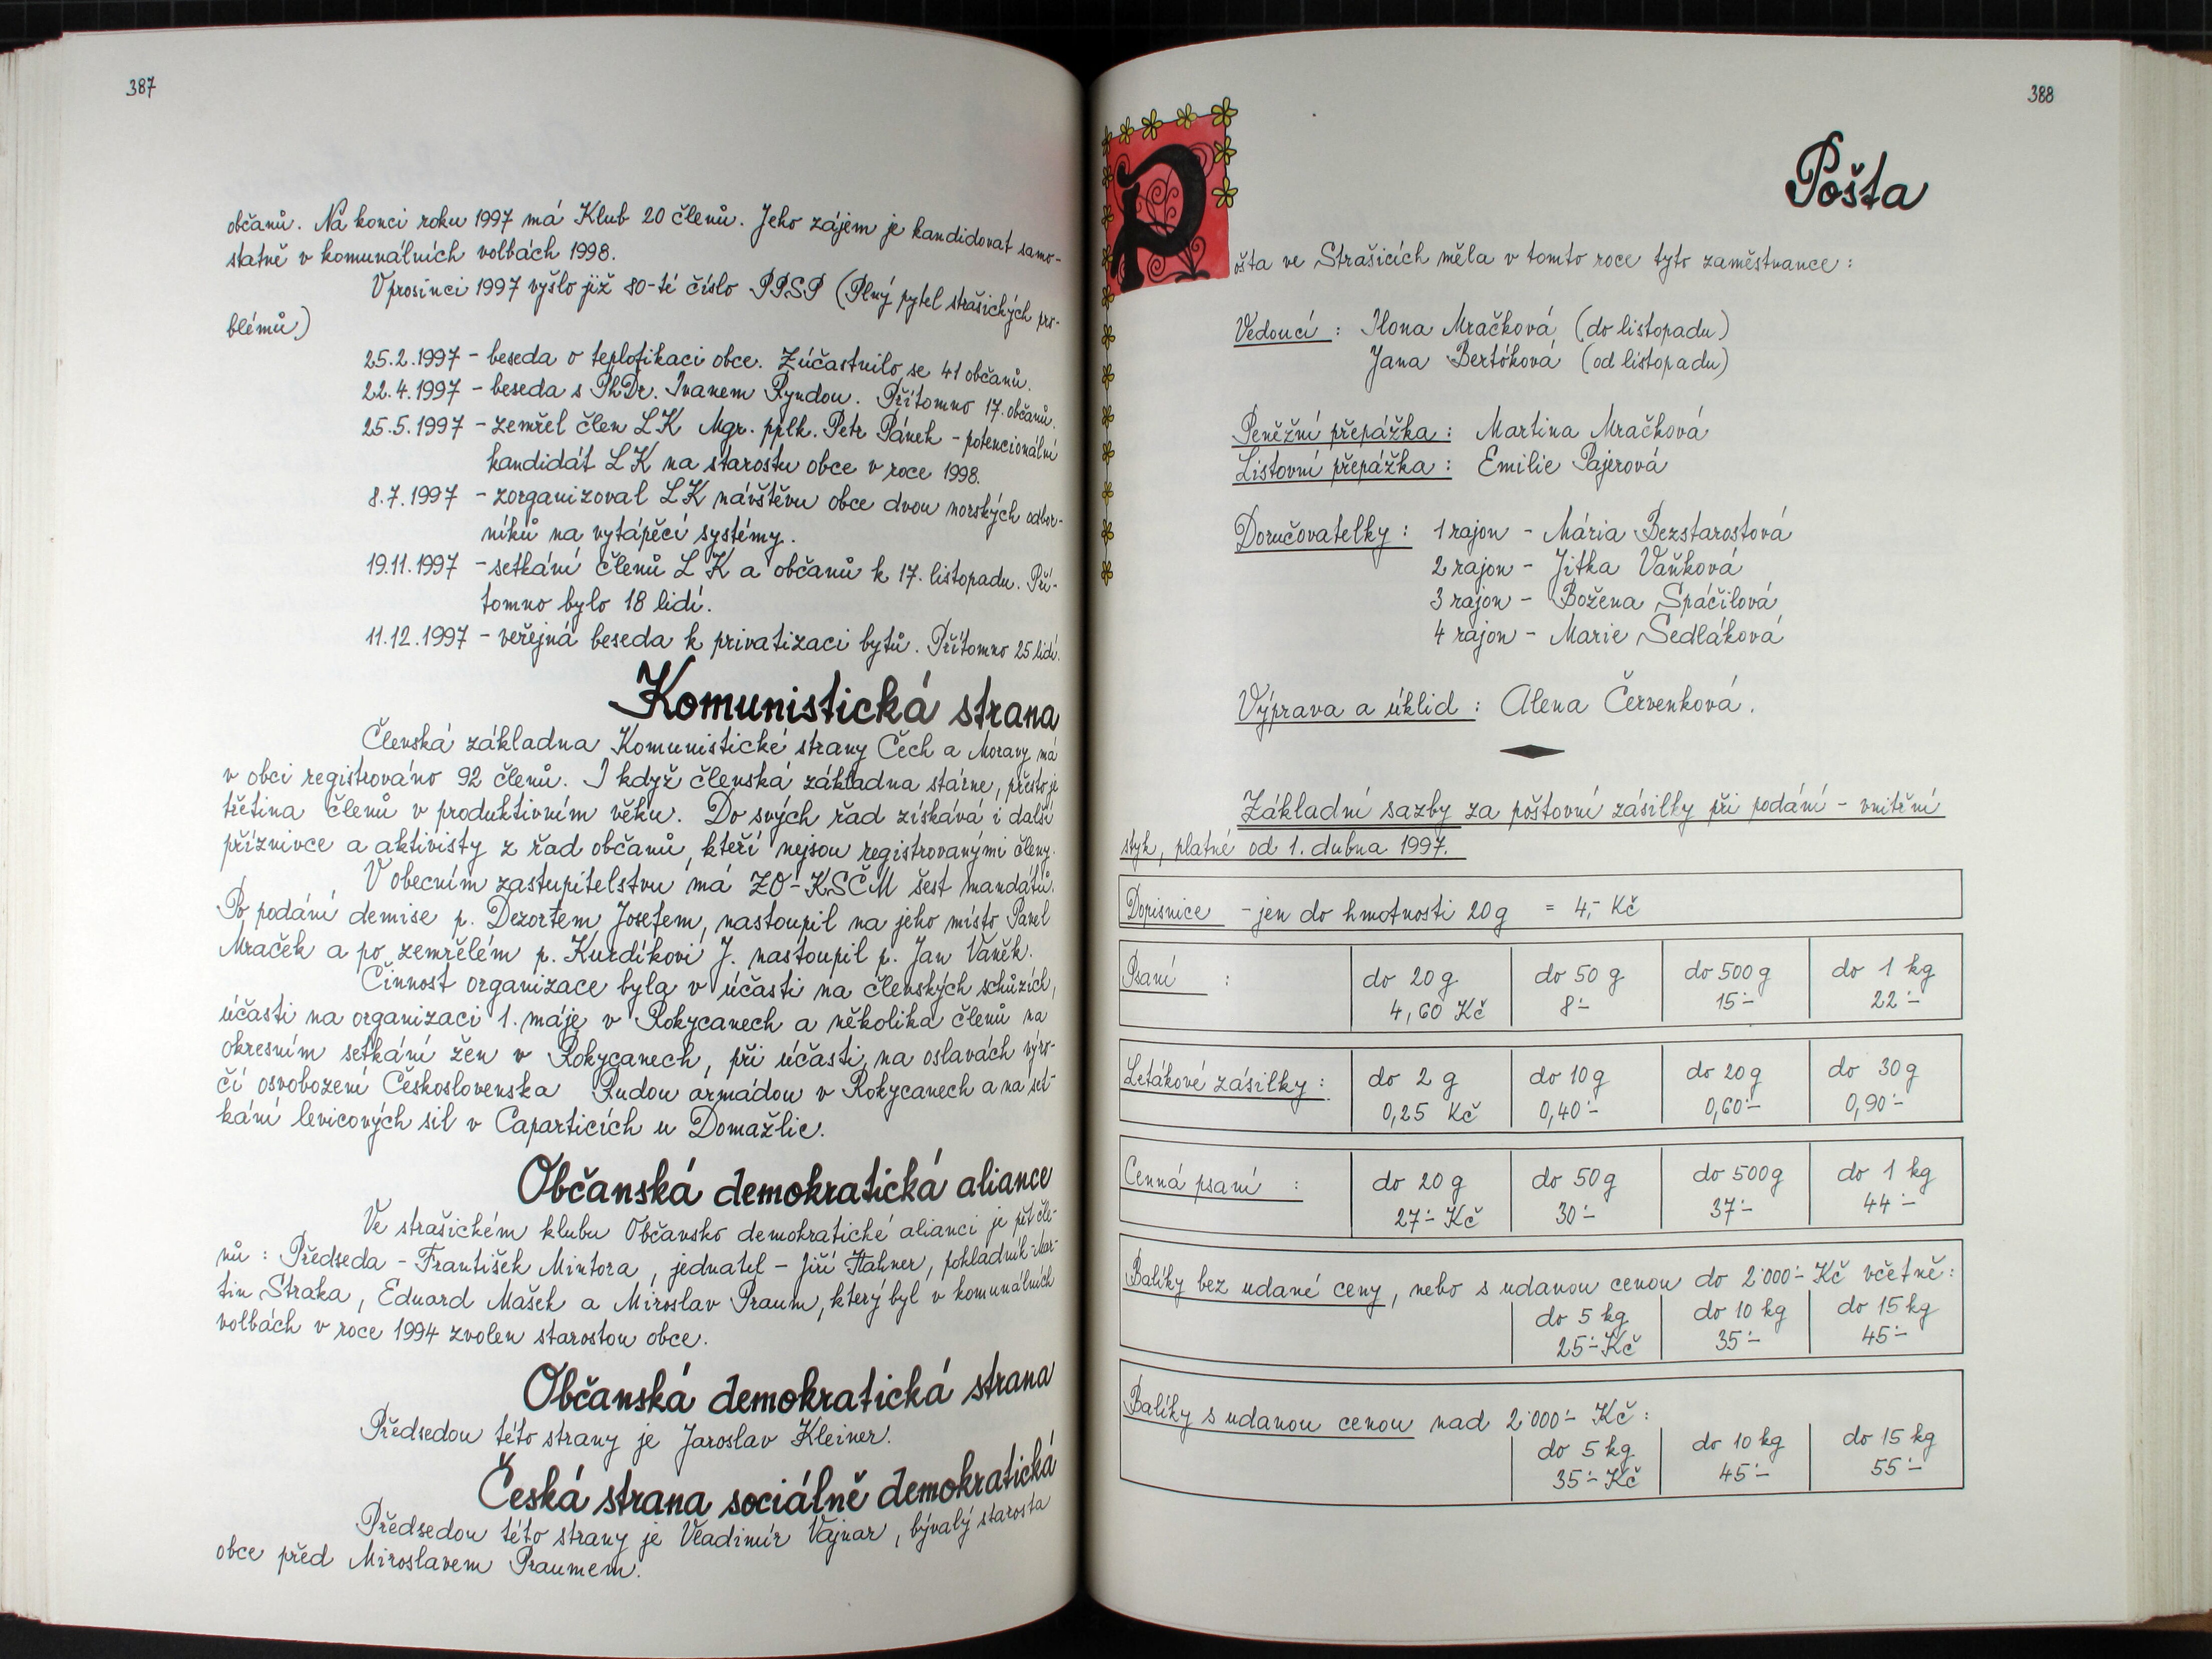 387
občanů. Na konci roku 1997 má Klub 20 členů. Jeho zájem je kandidovat samo-
statně v komunálních volbách 1998.
V prosinci 1997 vyšlo již 80-té číslo PPSP (Plný pytel strašických pro-
blémů)
25.2.1997 - beseda o teplofikaci obce. Zúčastnilo se 41 občanů.
22.4.1997 - beseda s PhDr. Ivanem Ryndou. Přítomno 17. občanů.
25.5.1997 - zemřel člen LK Mgr. pplk. Petr Pánek - potencionální
kandidát LK na starostu obce v roce 1998.
8.7.1997 - zorganizoval LK návštěvu obce dvou norských odbor-
níků na vytápěcí systémy.
19.11.1997 - setkání členů LK a občanů k 17. listopadu. Pří-
tomno bylo 18 lidí.
11.12.1997 - veřejná beseda k privatizaci bytů. Přítomno 25 lidí.
Komunistická strana
Členská základna Komunistické strany Čech a Moravy má
v obci registrováno 92 členů. I když členská základna stárne, přesto je
třetina členů v produktivním věku. Do svých řad získává i další
příznivce a aktivisty z řad občanů, kteří nejsou registrovanými členy.
V obecním zastupitelstvu má ZO-KSČM šest mandátů.
Po podání demise p. Dezortem Josefem, nastoupil na jeho místo Pavel
Mraček a po zemřelém p. Kurdíkovi J. nastoupil p. Jan Vaněk.
Činnost organizace byla v účasti na členských schůzích,
účasti na organizaci 1. máje v Rokycanech a několika členů na
okresním setkání žen v Rokycanech, při účasti na oslavách výro-
čí osvobození Československa Rudou armádou v Rokycanech a na set-
kání levicových sil v Caparticích u Domažlic.
Občanská demokratická aliance
Ve strašickém klubu Občansko demokratické alianci je pět čle-
nů : Předseda - František Mintora, jednatel - Jiří Hahner, pokladník - Mar-
tin Straka, Eduard Mašek a Miroslav Praum, který byl v komunálních
volbách v roce 1994 zvolen starostou obce.
Občanská demokratická strana
Předsedou této strany je Jaroslav Kleiner.
Česká strana sociálně demokratická
Předsedou této strany je Vladimír Vajnar, bývalý starosta
obce před Miroslavem Praumem.
388
Pošta
Pošta ve Strašicích měla v tomto roce tyto zaměstnance :
Vedoucí : Ilona Mračková (do listopadu)
Jana Bertóková (od listopadu)
Peněžní přepážka : Martina Mračková
Listovní přepážka : Emilie Pajerová
Doručovatelky : 1 rajon - Mária Bezstarostová
2 rajon - Jitka Vaňková
3 rajon - Božena Spáčilová
4 rajon - Marie Sedláková
Výprava a úklid : Alena Červenková.
Základní sazby za poštovní zásilky při podání - vnitřní
styk, platné od 1. dubna 1997.
Dopisnice - jen do hmotnosti 20g = 4,- Kč
Psaní : do 20g do 50 g do 500g do 1 kg
4,60 Kč 8:- 15:- 22:-
Letákové zásilky : do 2 g do 10g do 20g do 30g
0,25 Kč 0,40:- 0,60:- 0,90:-
Cenná psaní : do 20g do 50g do 500g do 1 kg
27:- Kč 30:- 37:- 44:-
Balíky bez udané ceny, nebo s udanou cenou do 2'000:- Kč včetně :
do 5 kg do 10 kg do 15 kg
25:- Kč 35:- 45:-
Balíky s udanou cenou nad 2'000:- Kč :
do 5 kg do 10 kg do 15 kg
35:- Kč 45:- 55:-